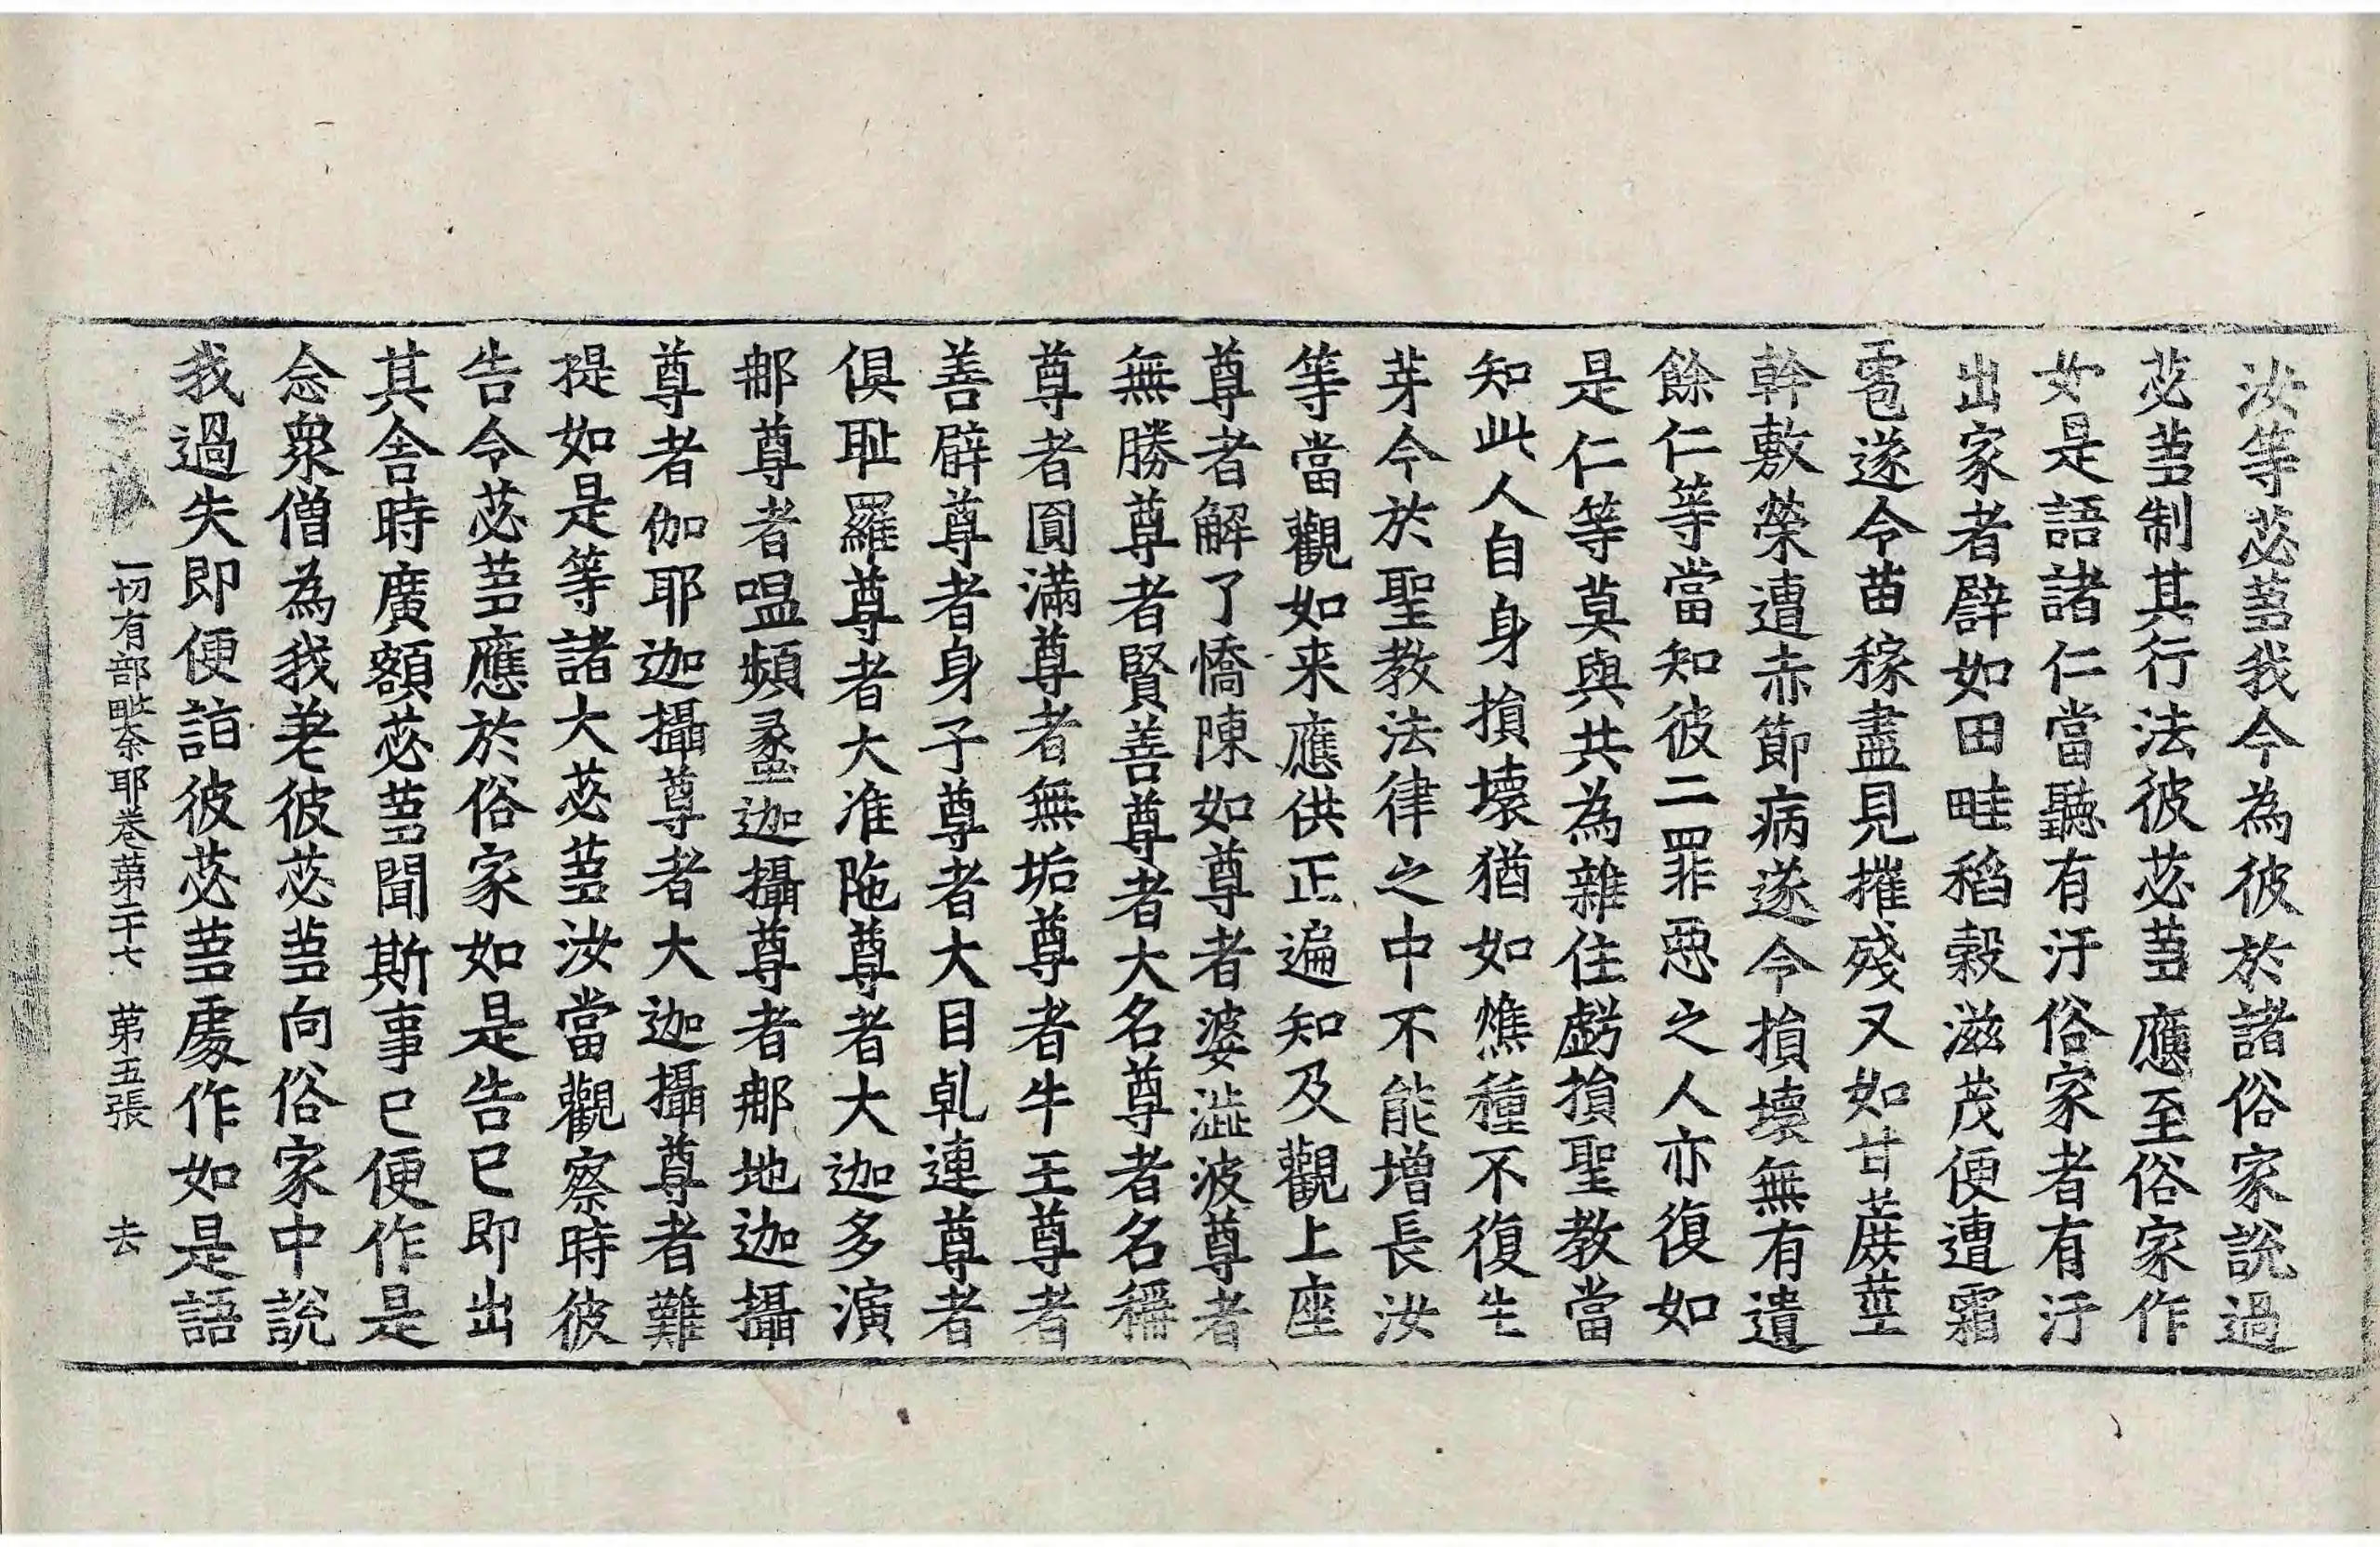 汝等苾蒭我今為彼於諸俗家說過
苾蒭制其行法彼苾蒭應至俗家作
如是語諸仁當聽有汙俗家者有汙
出家者譬如田畦稻穀滋茂便遭霜
雹遂令苗稼盡見摧殘又如甘蔗莖
幹敷榮遭赤節病遂令損壞無有遺
餘仁等當知彼二罪惡之人亦復如
是仁等莫與共為雜住虧損聖教當
知此人自身損壞猶如燋種不復生
芽今於聖教法律之中不能增長汝
等當觀如来應供正遍知及觀上座
尊者解了憍陳如尊者婆澁波尊者
無勝尊者賢善尊者大名尊者名稱
尊者圓滿尊者無垢尊者牛王尊者
善臂尊者身子尊者大目乹連尊者
俱耻羅尊者大准陁尊者大迦多演
那尊者嗢頻蠡迦攝尊者那地迦攝
尊者伽耶迦攝尊者大迦攝尊者難
提如是等諸大苾蒭汝當觀察時彼
告令苾蒭應於俗家如是告已即出
其舍時廣額苾蒭聞斯事已便作是
念衆僧為我差彼苾蒭向俗家中說
我過失即便詣彼苾蒭處作如是語
一切有部毗奈耶卷第三十七 第五張 去